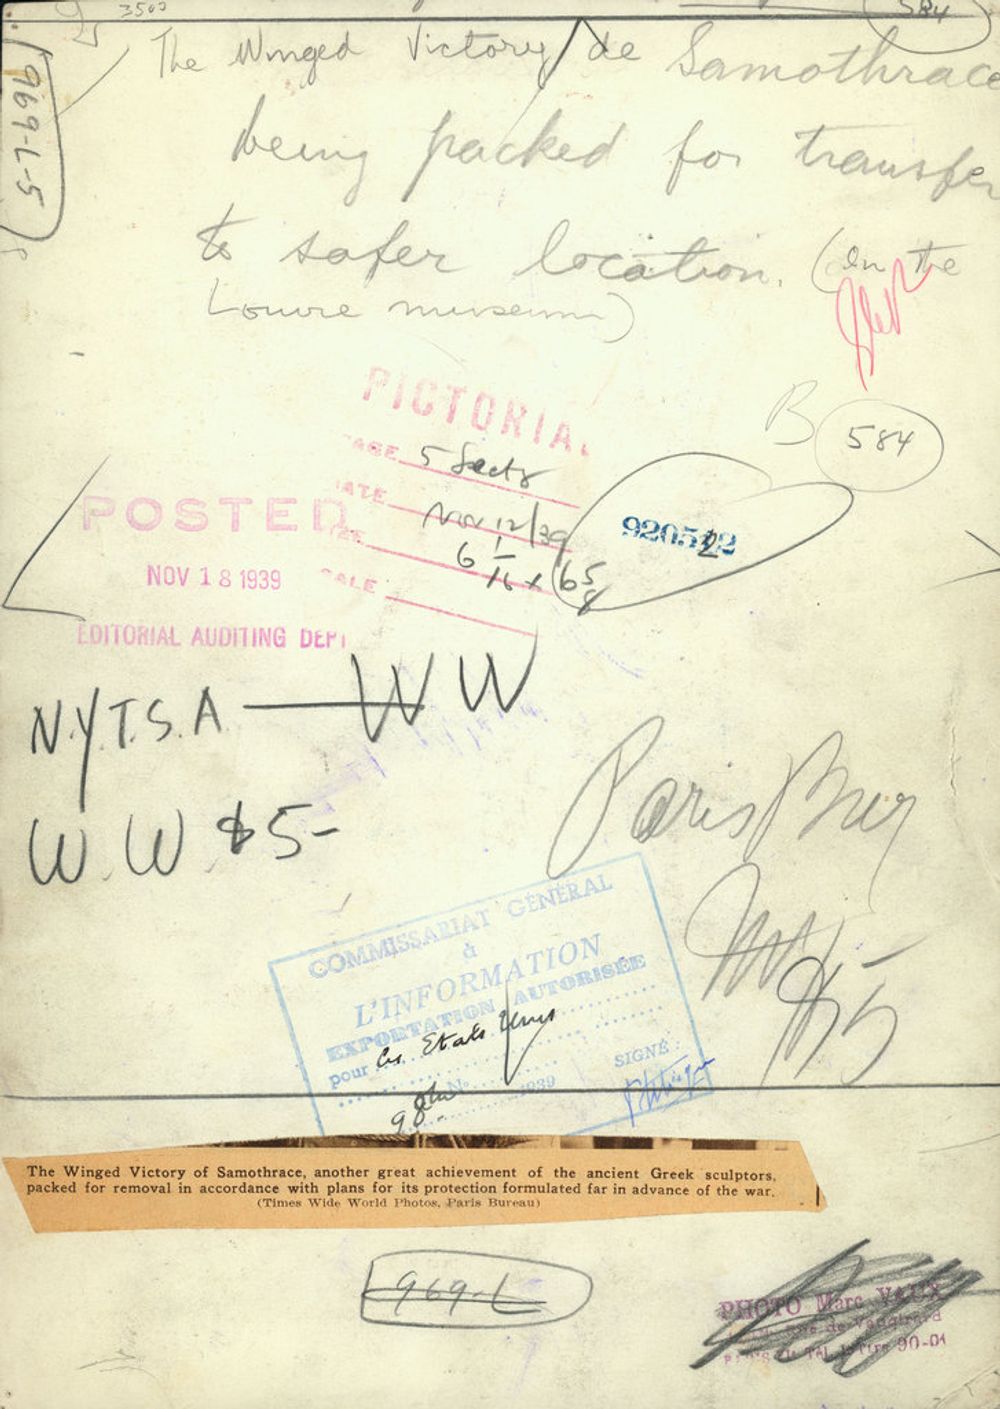 3503
584
969-L-5
The Winged Victory de Samothrace
being packed for transfer
to safer location. (In the
Louvre museum)
PICTORIAL
B 584
PAGE 5 Sect 8
DATE Nov 12/39
SIZE 6 1/16 x 6 5/8
SALE
920512
POSTED
NOV 18 1939
EDITORIAL AUDITING DEPT
N.Y.T.S.A — WW
W.W $5-
Paris Bur
$5-
COMMISSARIAT GÉNÉRAL
à
L'INFORMATION
EXPORTATION AUTORISÉE
pour les Etats Unis
N° 1939
SIGNÉ :
98
The Winged Victory of Samothrace, another great achievement of the ancient Greek sculptors,
packed for removal in accordance with plans for its protection formulated far in advance of the war.
(Times Wide World Photos, Paris Bureau)
969-L
PHOTO Marc VAUX
Rue de Vaugirard
PARIS 90-01